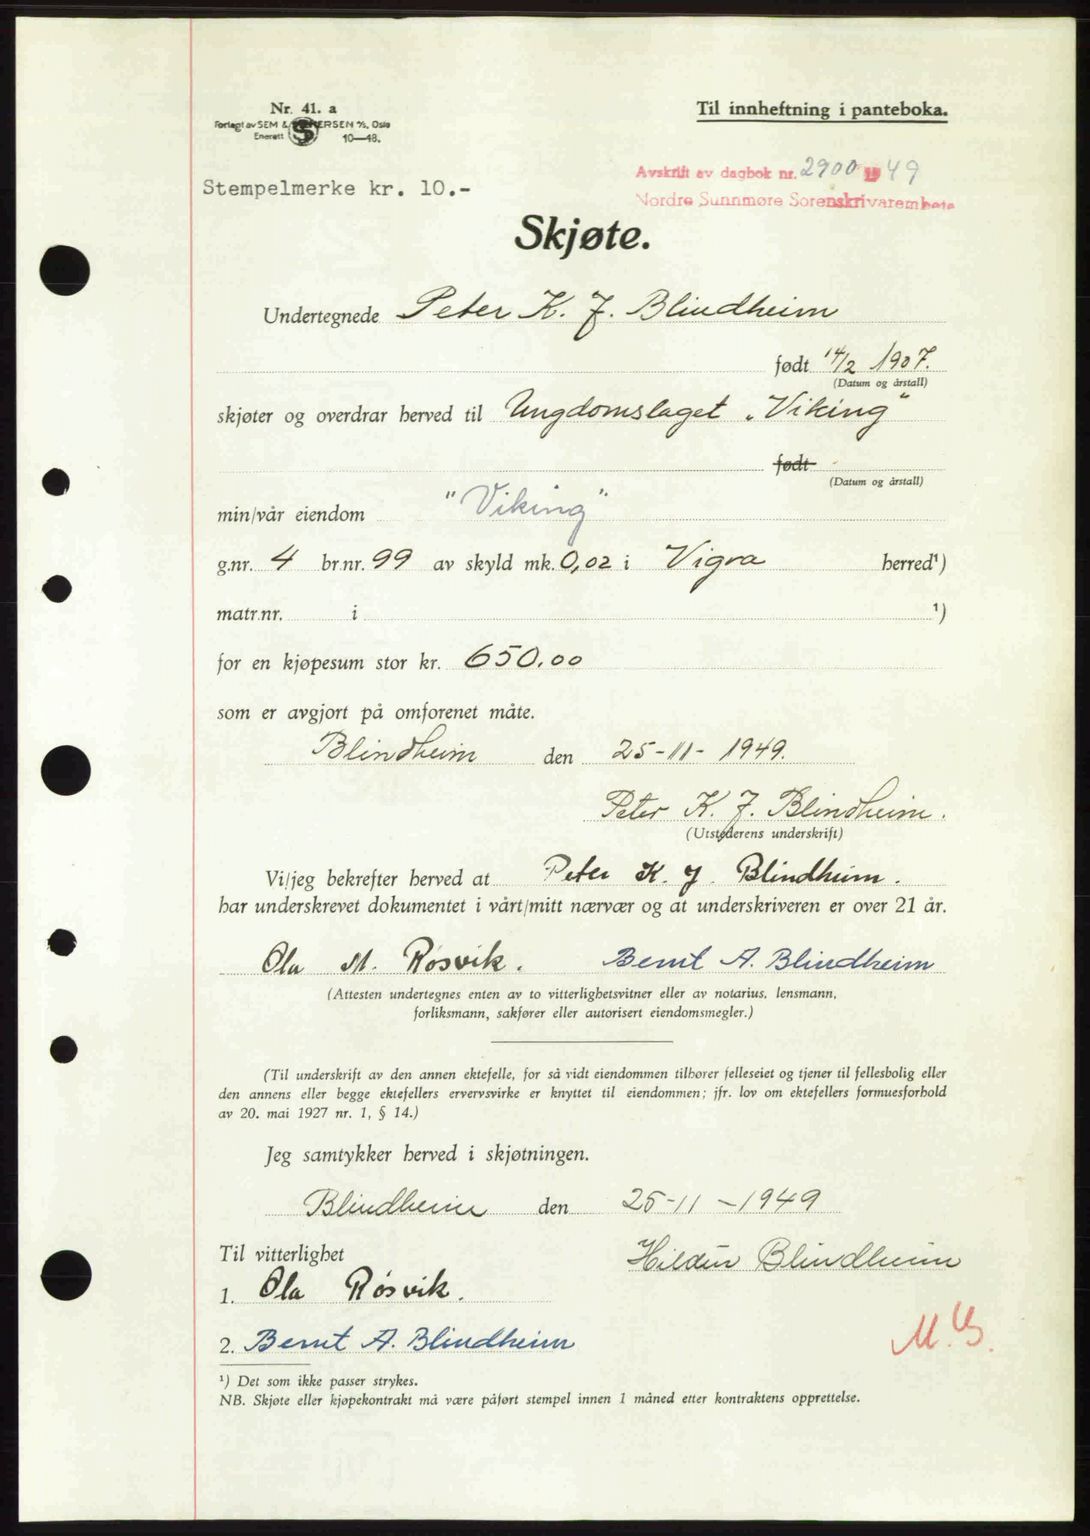 Nr. 41. a
Forlagt av SEM & STENERSEN A/S, Oslo
Enerett 10—48.
Til innheftning i panteboka.
Stempelmerke kr. 10.-
Avskrift av dagbok nr. 2900 1949
Nordre Sunnmøre Sorenskrivarembete
Skjøte.
Undertegnede Peter K. J. Blindheim
født 14/2 1907.
(Datum og årstall)
skjøter og overdrar herved til Ungdomslaget „Viking"
født
(Datum og årstall)
min/vår eiendom "Viking"
g.nr. 4 br.nr. 99 av skyld mk. 0,02 i Vigra herred¹)
matr.nr. i ¹)
for en kjøpesum stor kr. 650,00
som er avgjort på omforenet måte.
Blindheim den 25-11-1949.
Peter K. J. Blindheim.
(Utstederens underskrift)
Vi/jeg bekrefter herved at Peter K. J. Blindheim.
har underskrevet dokumentet i vårt/mitt nærvær og at underskriveren er over 21 år.
Ola M. Røsvik. Bernt A. Blindheim
(Attesten undertegnes enten av to vitterlighetsvitner eller av notarius, lensmann,
forliksmann, sakfører eller autorisert eiendomsmegler.)
(Til underskrift av den annen ektefelle, for så vidt eiendommen tilhører felleseiet og tjener til fellesbolig eller
den annens eller begge ektefellers ervervsvirke er knyttet til eiendommen; jfr. lov om ektefellers formuesforhold
av 20. mai 1927 nr. 1, § 14.)
Jeg samtykker herved i skjøtningen.
Blindheim den 25-11-1949
Til vitterlighet
Hildur Blindheim
1. Ola Røsvik.
2. Bernt A. Blindheim
¹) Det som ikke passer strykes.
NB. Skjøte eller kjøpekontrakt må være påført stempel innen 1 måned etter kontraktens opprettelse.